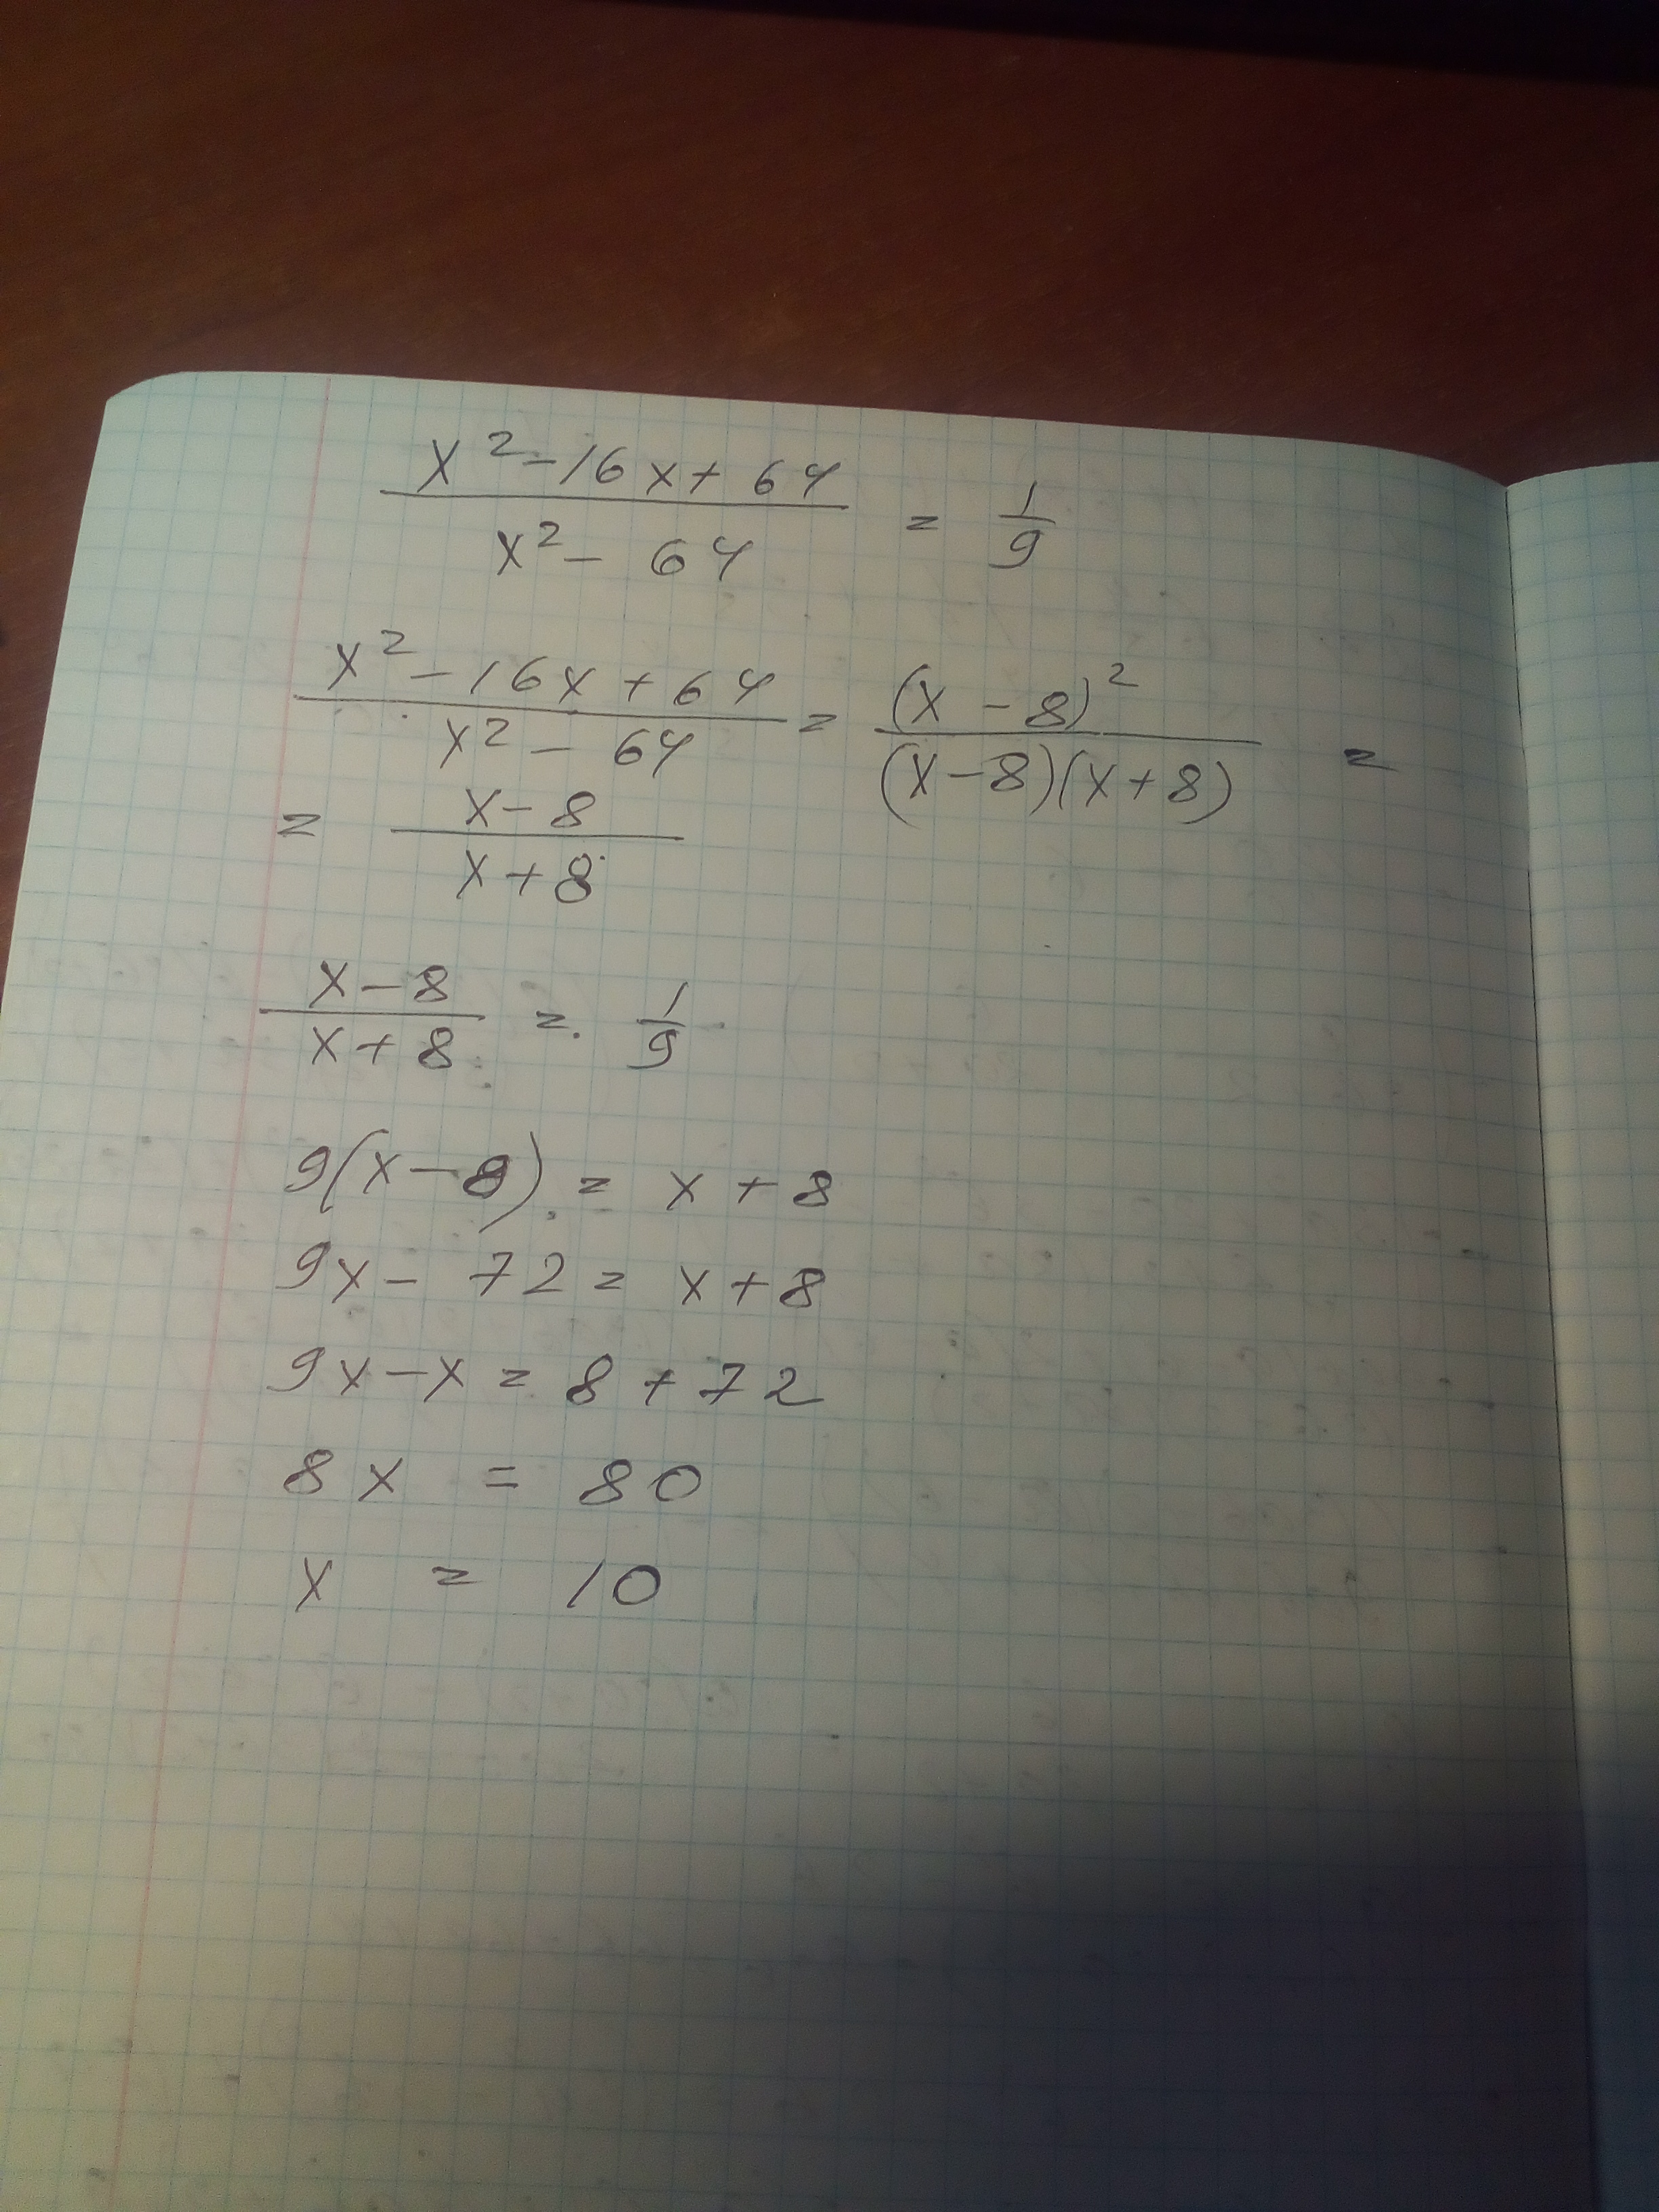 (x²-16x+64)/(x²-64) = 1/9
(x²-16x+64)/(x²-64) = (x-8)²/((x-8)(x+8)) =
= (x-8)/(x+8)
(x-8)/(x+8) = 1/9
9(x-8) = x+8
9x-72 = x+8
9x-x = 8+72
8x = 80
x = 10